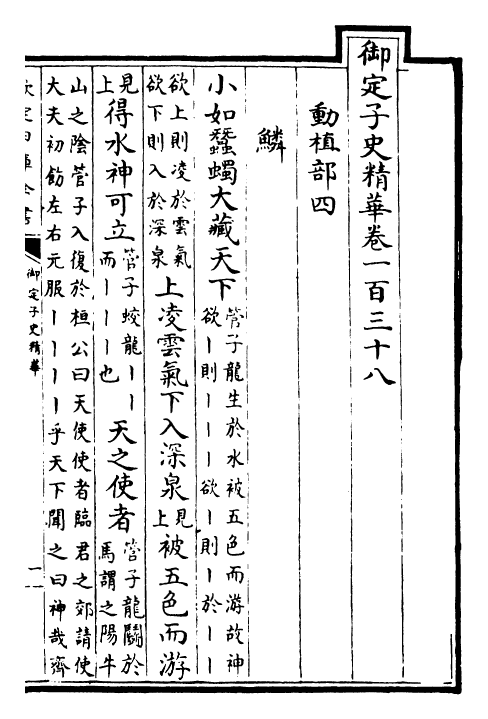 御定子史精華卷一百三十八
動植部四
鱗
小如蠶蠋大藏天下
管子龍生於水被五色而游故神
欲丨則丨丨丨欲丨則丨於丨丨
欲上則凌於雲氣
欲下則入於深泉
上凌雲氣下入深泉
見上
被五色而游
見上
得水神可立
管子蛟龍丨丨
而丨丨丨也
天之使者
管子龍鬬於
馬謂之陽牛
山之陰管子入復於桓公曰天使使者臨君之郊請使
大夫初飭左右元服丨丨丨丨乎天下聞之曰神哉齊
御定子史精華
一